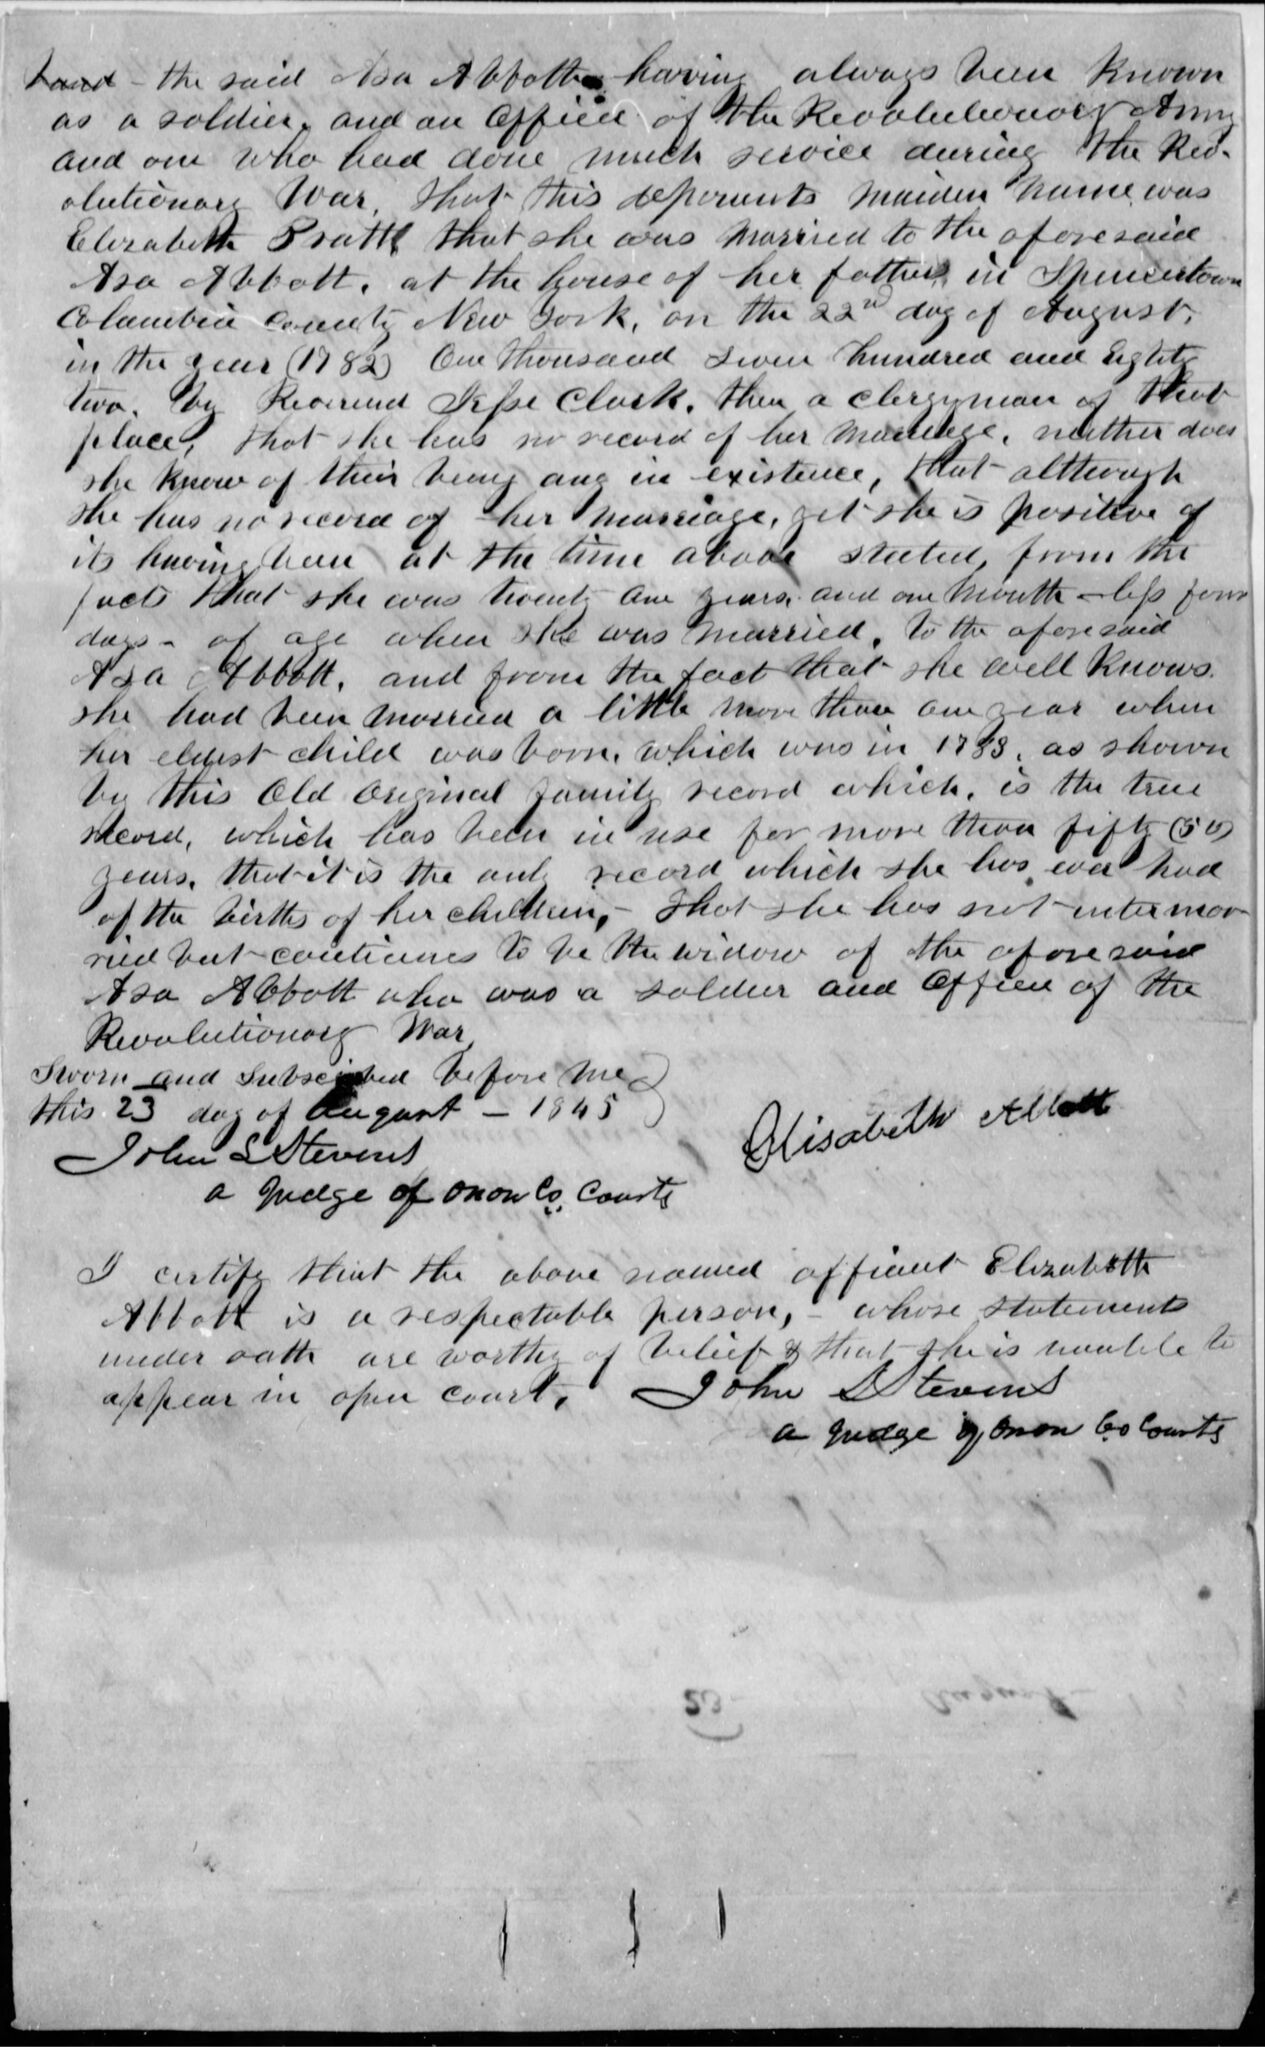 hand - the said Asa Abbott having always been known
as a soldier, and an officer of the Revolutionary Army
and one who had done much service during the Rev-
olutionary War, that this deponents maiden name was
Elizabeth Pratt that she was married to the aforesaid
Asa Abbott, at the house of her father in Spencertown
Columbia County New York, on the 22nd day of August,
in the year (1782) One thousand seven hundred and Eighty
two, by Reverend Jesse Clark, then a clergyman of that
place, that she has no record of her marriage, neither does
she know of their being any in existence, that although
she has no record of her marriage, yet she is positive of
its having been at the time above stated, from the
facts that she was twenty one years, and one month - less four
days - of age when she was married, to the aforesaid
Asa Abbott, and from the fact that she well knows
she had been married a little more than one year when
her eldest child was born, which was in 1783, as shown
by this Old Original family record which, is the true
record, which has been in use for more than fifty (50)
years, that it is the only record which she has ever had
of the births of her children, - that she has not intermar-
ried but continues to be the widow of the aforesaid
Asa Abbott who was a soldier and Officer of the
Revolutionary War
Sworn and Subscribed before me
this 23 day of August - 1845
Elisabeth Abbott
John L Stevens
a Judge of Onon Co. Courts
I certify that the above named affiant Elizabeth
Abbott is a respectable person, - whose statements
under oath are worthy of belief & that she is unable to
appear in open court, John L Stevens
a Judge of Onon Co Courts